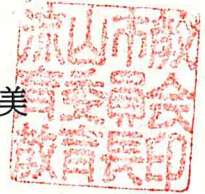 美
流山市教
育委員会
教育長印